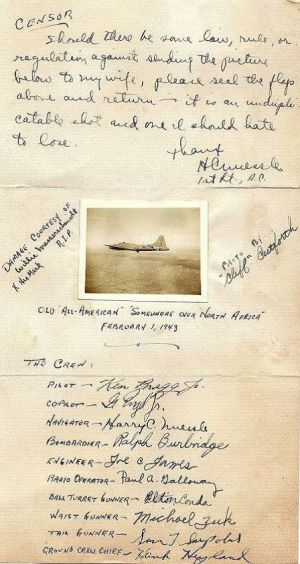 CENSOR
Should there be some law, rule, or
regulation against sending the picture
below to my wife, please seal the flap
above and return — it is an undupli-
catable shot and one I should hate
to lose.
Thanx
HCNuessle
1st Lt., A.C.
DAMAGE COURTESY OF
Willie Messerschmidt
X His Mark
R.I.P.
"PHOTO" BY
"Cliff" Cutforth
OLD "ALL-AMERICAN" "SOMEWHERE OVER NORTH AFRICA"
FEBRUARY 1, 1943
THE CREW:
PILOT — Ken Bragg Jr.
COPILOT — Jr.
NAVIGATOR — Harry C. Nuessle
BOMBARDIER — Ralph Burbridge
ENGINEER — Joe C. James
RADIO OPERATOR — Paul A. Galloway
BALL TURRET GUNNER — Elton Conda
WAIST GUNNER — Michael Zuk
TAIL GUNNER — Sam T. Sarpolus
GROUND CREW CHIEF — Hank Hyland